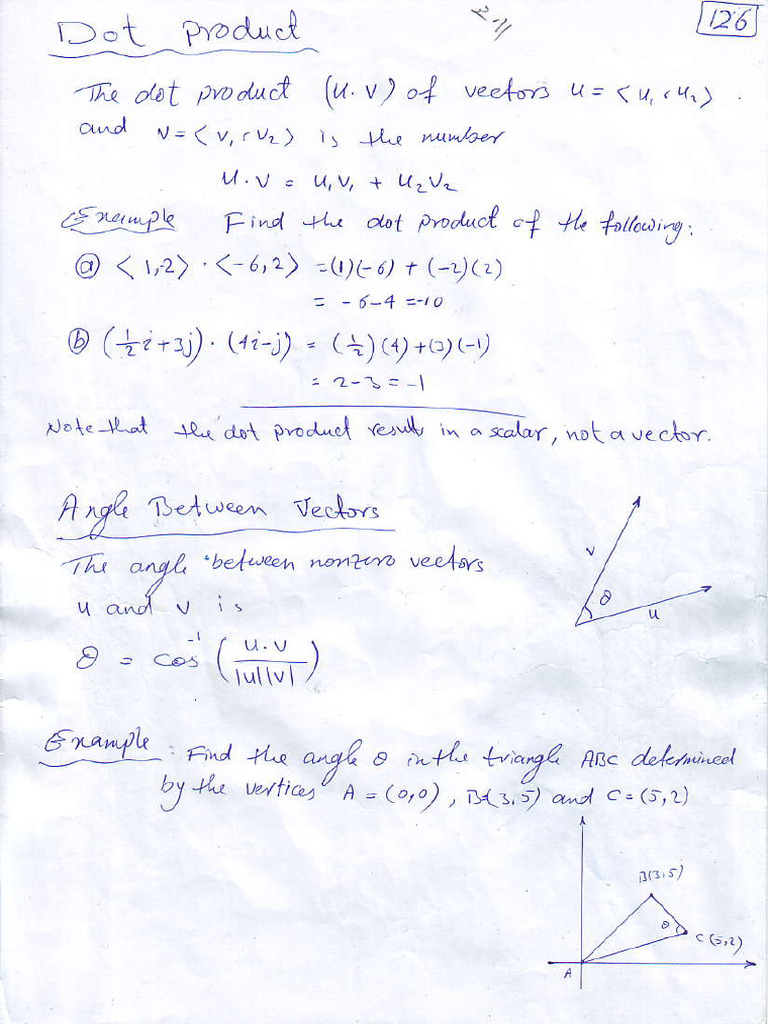 126
Dot product
The dot product (u·v) of vectors u = <u₁, u₂>.
and v = <v₁, v₂> is the number
u·v = u₁v₁ + u₂v₂
Example Find the dot product of the following:
ⓐ <1,-2>·<-6,2> = (1)(-6) + (-2)(2)
= -6-4 = -10
ⓑ (½i+3j)·(4i-j) = (½)(4)+(3)(-1)
= 2-3 = -1
Note that the dot product results in a scalar, not a vector.
Angle Between Vectors
The angle between nonzero vectors
u and v is
θ = cos⁻¹(u·v / |u||v|)
v
θ
u
Example: Find the angle θ in the triangle ABC determined
by the vertices A = (0,0), B=(3,5) and C=(5,2)
B(3,5)
θ
C(5,2)
A